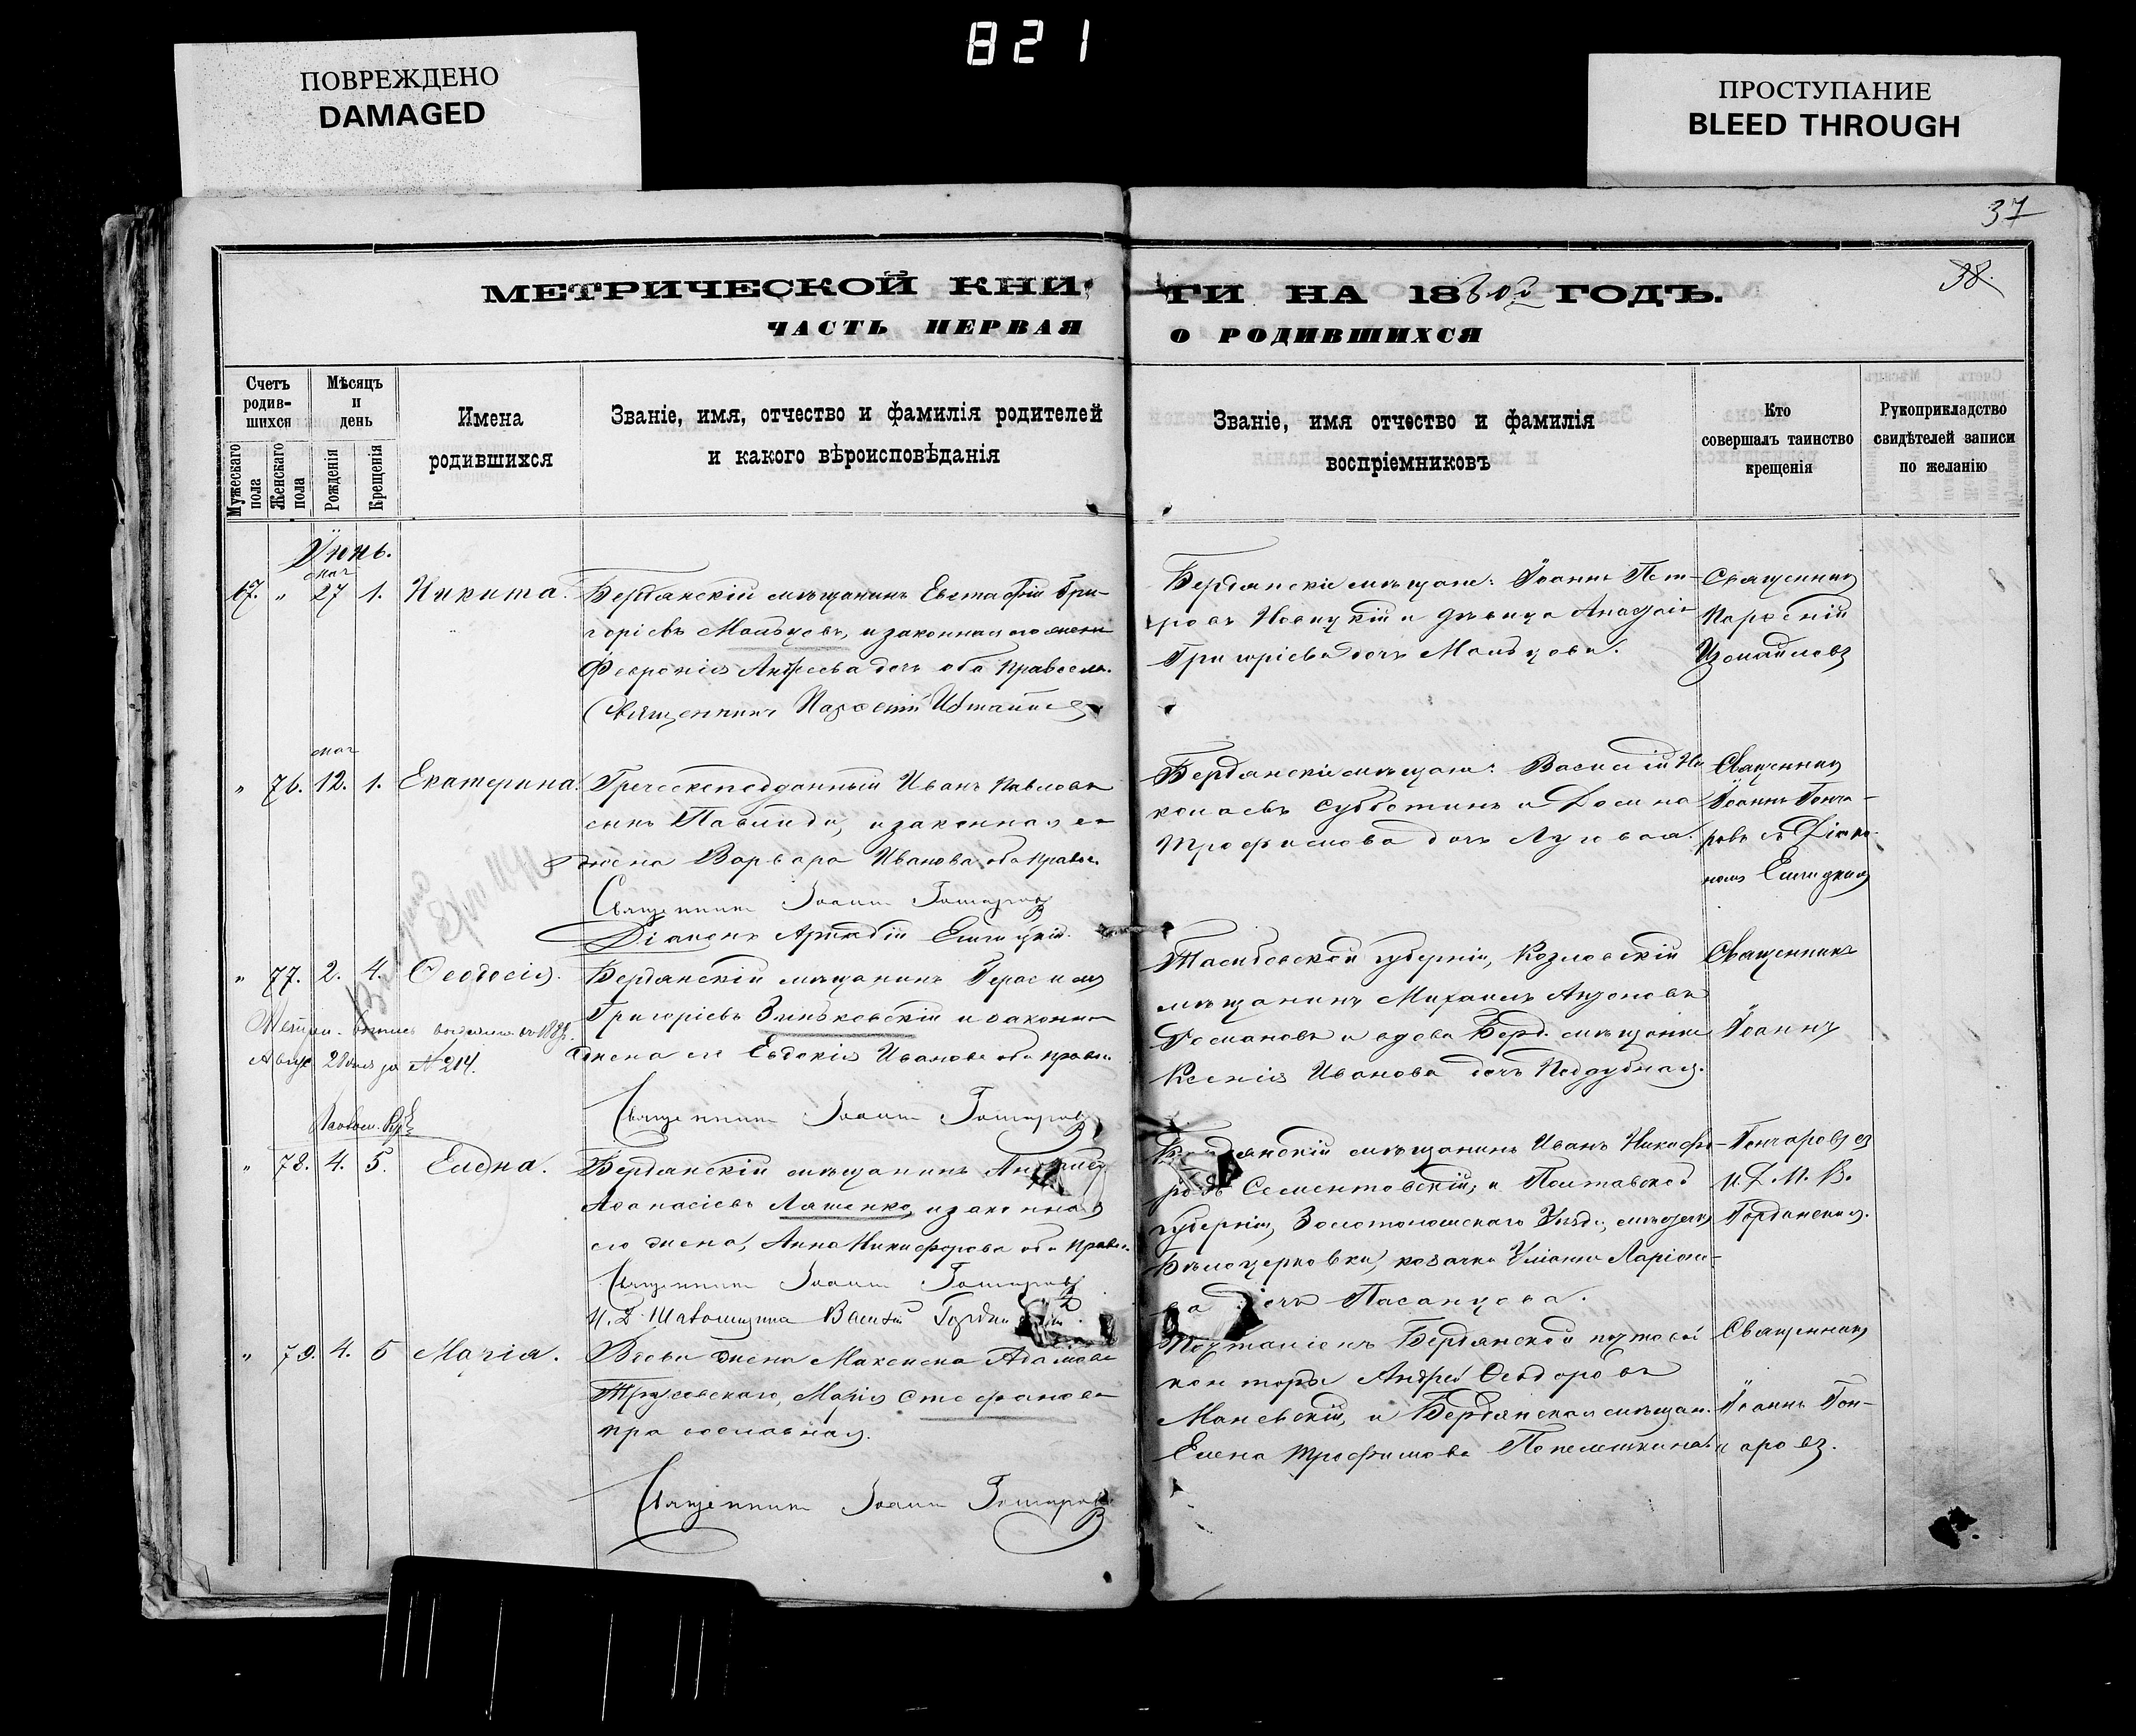 821
ПОВРЕЖДЕНО
DAMAGED
ПРОСТУПАНИЕ
BLEED THROUGH
37
38.
МЕТРИЧЕСКОЙ КНИ
ГИ НА 18 ГОДЪ.
ЧАСТЬ ПЕРВАЯ
О РОДИВШИХСЯ
Счетъ
родив-
шихся
Мѣсяцъ
и
день
Мужескаго
пола
Женскаго
пола
Рожденія
Крещенія
Имена
родившихся
Званіе, имя, отчество и фамилія родителей
и какого вѣроисповѣданія
Званіе, имя отчество и фамилія
воспріемниковъ
Кто
совершалъ таинство
крещенія
Рукоприкладство
свидѣтелей записи
по желанію
Іюнь.
мая
67. " 27 1. Никита.
Бердянскій мѣщанинъ Евстафій Гри-
горіевъ Мальцовъ, и законная его жена
Феоронія Андреева дочь оба правосла.
Священникъ Парфеній Измаиловъ
Бердянскіе мѣщане: Іоаннъ Пет-
ровъ Новицкій и дѣвица Анастасія
Григоріева дочь Мальцова.
Священникъ
Парфеній
Измаиловъ
мая
" 76. 12. 1. Екатерина.
Греческоподданный Иванъ Павловъ
сынъ Павлиди, и законная его
жена Варвара Иванова оба правос.
Священникъ Іоаннъ Гончаровъ
Діаконъ Аркадій
Бердянскіе мѣщане: Василій Ни
колаевъ Субботинъ и Домна
Трофимова дочь Луговая.
Священникъ
Іоаннъ Гонча-
ровъ съ Діако-
номъ
" 77. 2. 4. Ѳеодосія.
Бердянскій мѣщанинъ Герасимъ
Григоріевъ Зиньковскій и законная
жена его Евдокія Иванова оба правос.
Священникъ Іоаннъ Гончаровъ
Метрич. выпись выдана въ
Август. 28 дня за № 214.
Тамбовской губерніи, Козловскій
мѣщанинъ Михаилъ
Романовъ и вдова Берд. мѣщанка
Ксенія Иванова дочь Поддубная.
Священникъ
Іоаннъ
" 78. 4. 5. Елена.
Бердянскій мѣщанинъ
Аѳанасіевъ Ляшенко, и законная
его жена, Анна Никифорова оба правос.
Священникъ Іоаннъ Гончаровъ
И. Д. Псаломщика Василій
Бердянскій мѣщанинъ Иванъ Никифо-
ровъ Сементовскій, и Полтавской
губерніи, Золотоношскаго Уѣзда, мѣстечка
Бѣлоцерковки, козачка Уліана Ларіоно-
ва дочь
Гончаровъ съ
И. Д. П. В.
" 79. 4. 5 Марія.
Вдова жена Максима Адамова
Марія Стефанова
православная.
Священникъ Іоаннъ Гончаровъ
Почталіонъ Бердянской почтовой
конторы Андрей Ѳеодоровъ
Маневскій, и Бердянская мѣщан.
Елена Трофимова
Священникъ
Іоаннъ Гон-
чаровъ.